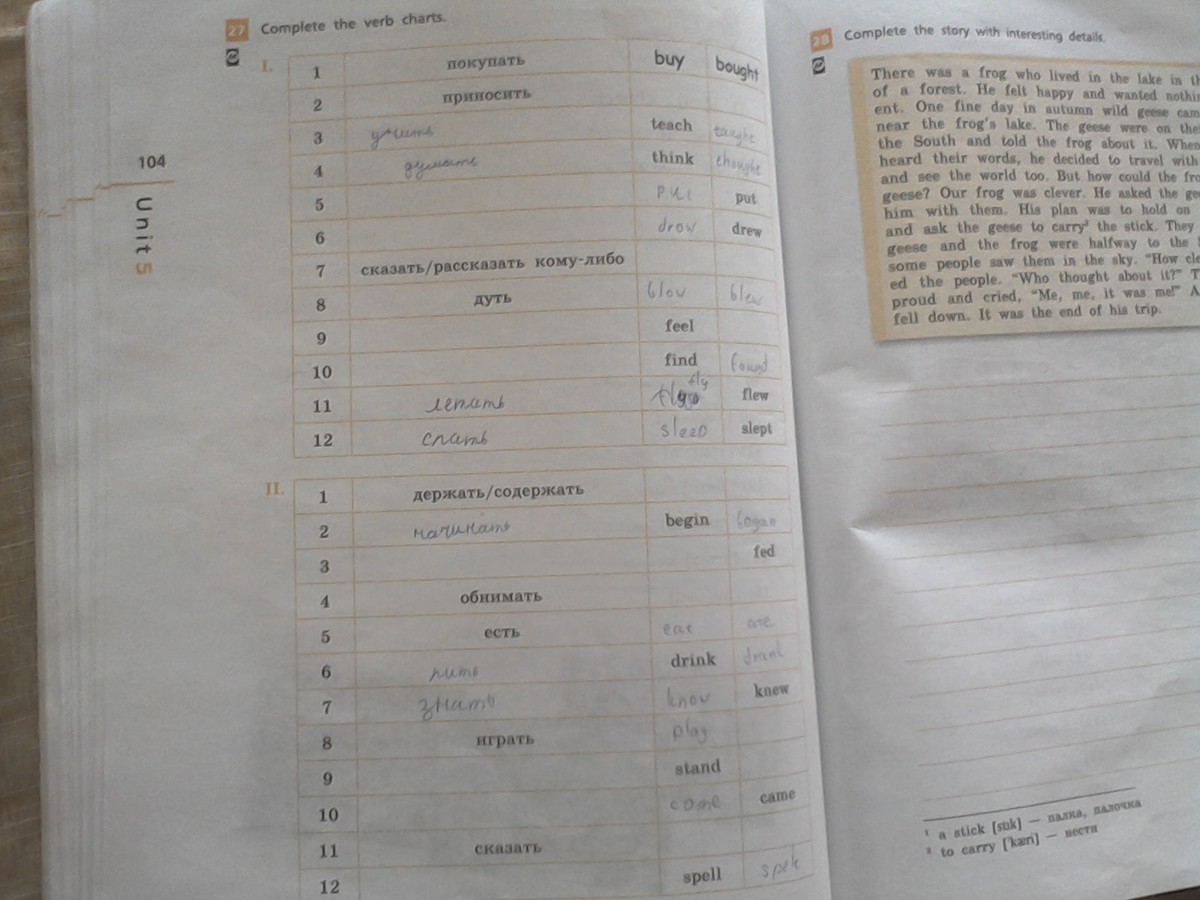 27 Complete the verb charts.
I.
1 покупать buy bought
2 приносить
3 учить teach taught
4 думать think thought
5 put put
6 drow drew
7 сказать/рассказать кому-либо
8 дуть blow blew
9 feel
10 find found
11 летать fly flew
12 спать sleep slept
II.
1 держать/содержать
2 начинать begin began
3 fed
4 обнимать
5 есть eat ate
6 пить drink drank
7 знать know knew
8 играть play
9 stand
10 come came
11 сказать
12 spell
104
Unit 5
28 Complete the story with interesting details.
There was a frog who lived in the lake in
of a forest. He felt happy and wanted
ent. One fine day in autumn wild geese
near the frog's lake. The geese were on
the South and told the frog about it. When
heard their words, he decided to travel with
and see the world too. But how could the
geese? Our frog was clever. He asked the
him with them. His plan was to hold on
and ask the geese to carry² the stick. They
geese and the frog were halfway to the
some people saw them in the sky. “How
ed the people. “Who thought about it?”
proud and cried, “Me, me, it was me!”
fell down. It was the end of his trip.
¹ a stick [stɪk] — палка, палочка
² to carry ['kæri] — нести